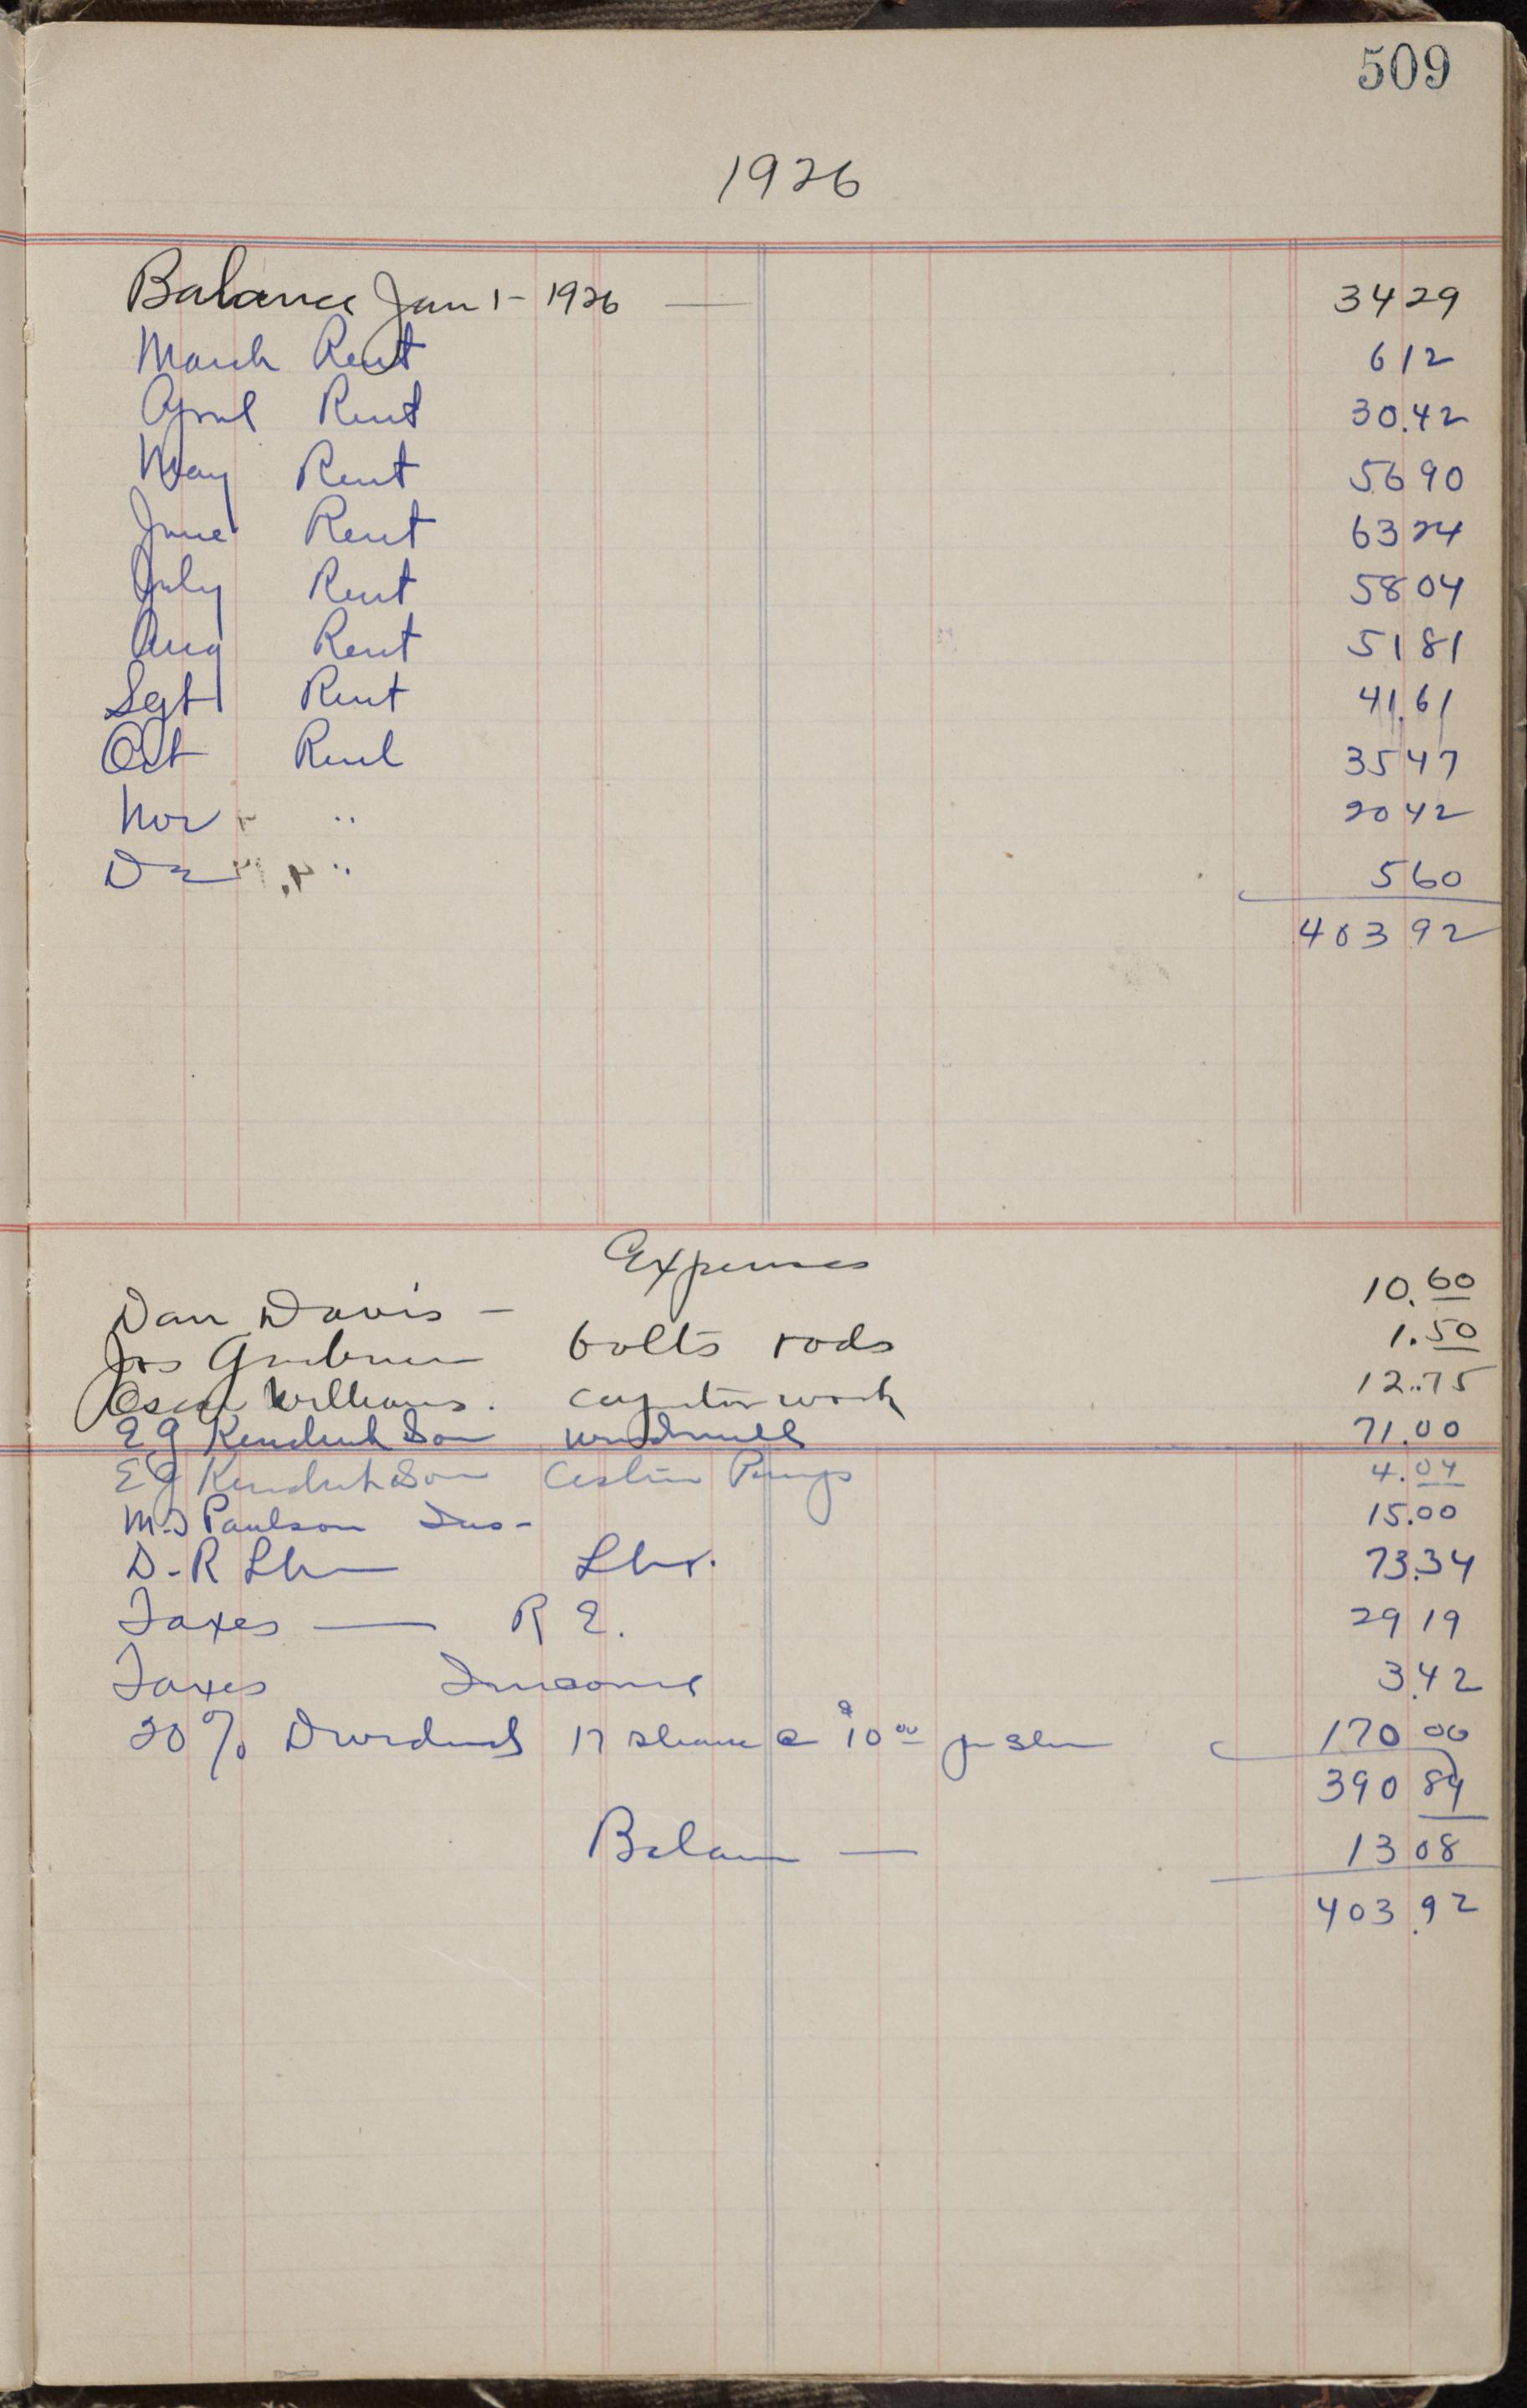 509
1926
Balance Jan 1 - 1926 — 34 29
March Rent 6 12
April Rent 30.42
May Rent 56 90
June Rent 63 24
July Rent 58 04
Aug Rent 51 81
Sept Rent 41.61
Oct Rent 35 47
Nov " 20 42
Dec " 5 60
403 92
Expenses
Dan Davis — 10.60
Jos bolts rods 1.50
Oscar Williams. carpenter work 12.75
E G Kendrick Son windmill 71.00
E G Kendrick Son Cistern Pump 4.04
M.J Paulson Ins - 15.00
D-R Lbr — Lbr. 73.34
Taxes — R E. 29 19
Taxes Income 3.42
20% Dividends 17 shares @ $10 00 per sh 170 00
390 84
Balance — 13 08
403.92